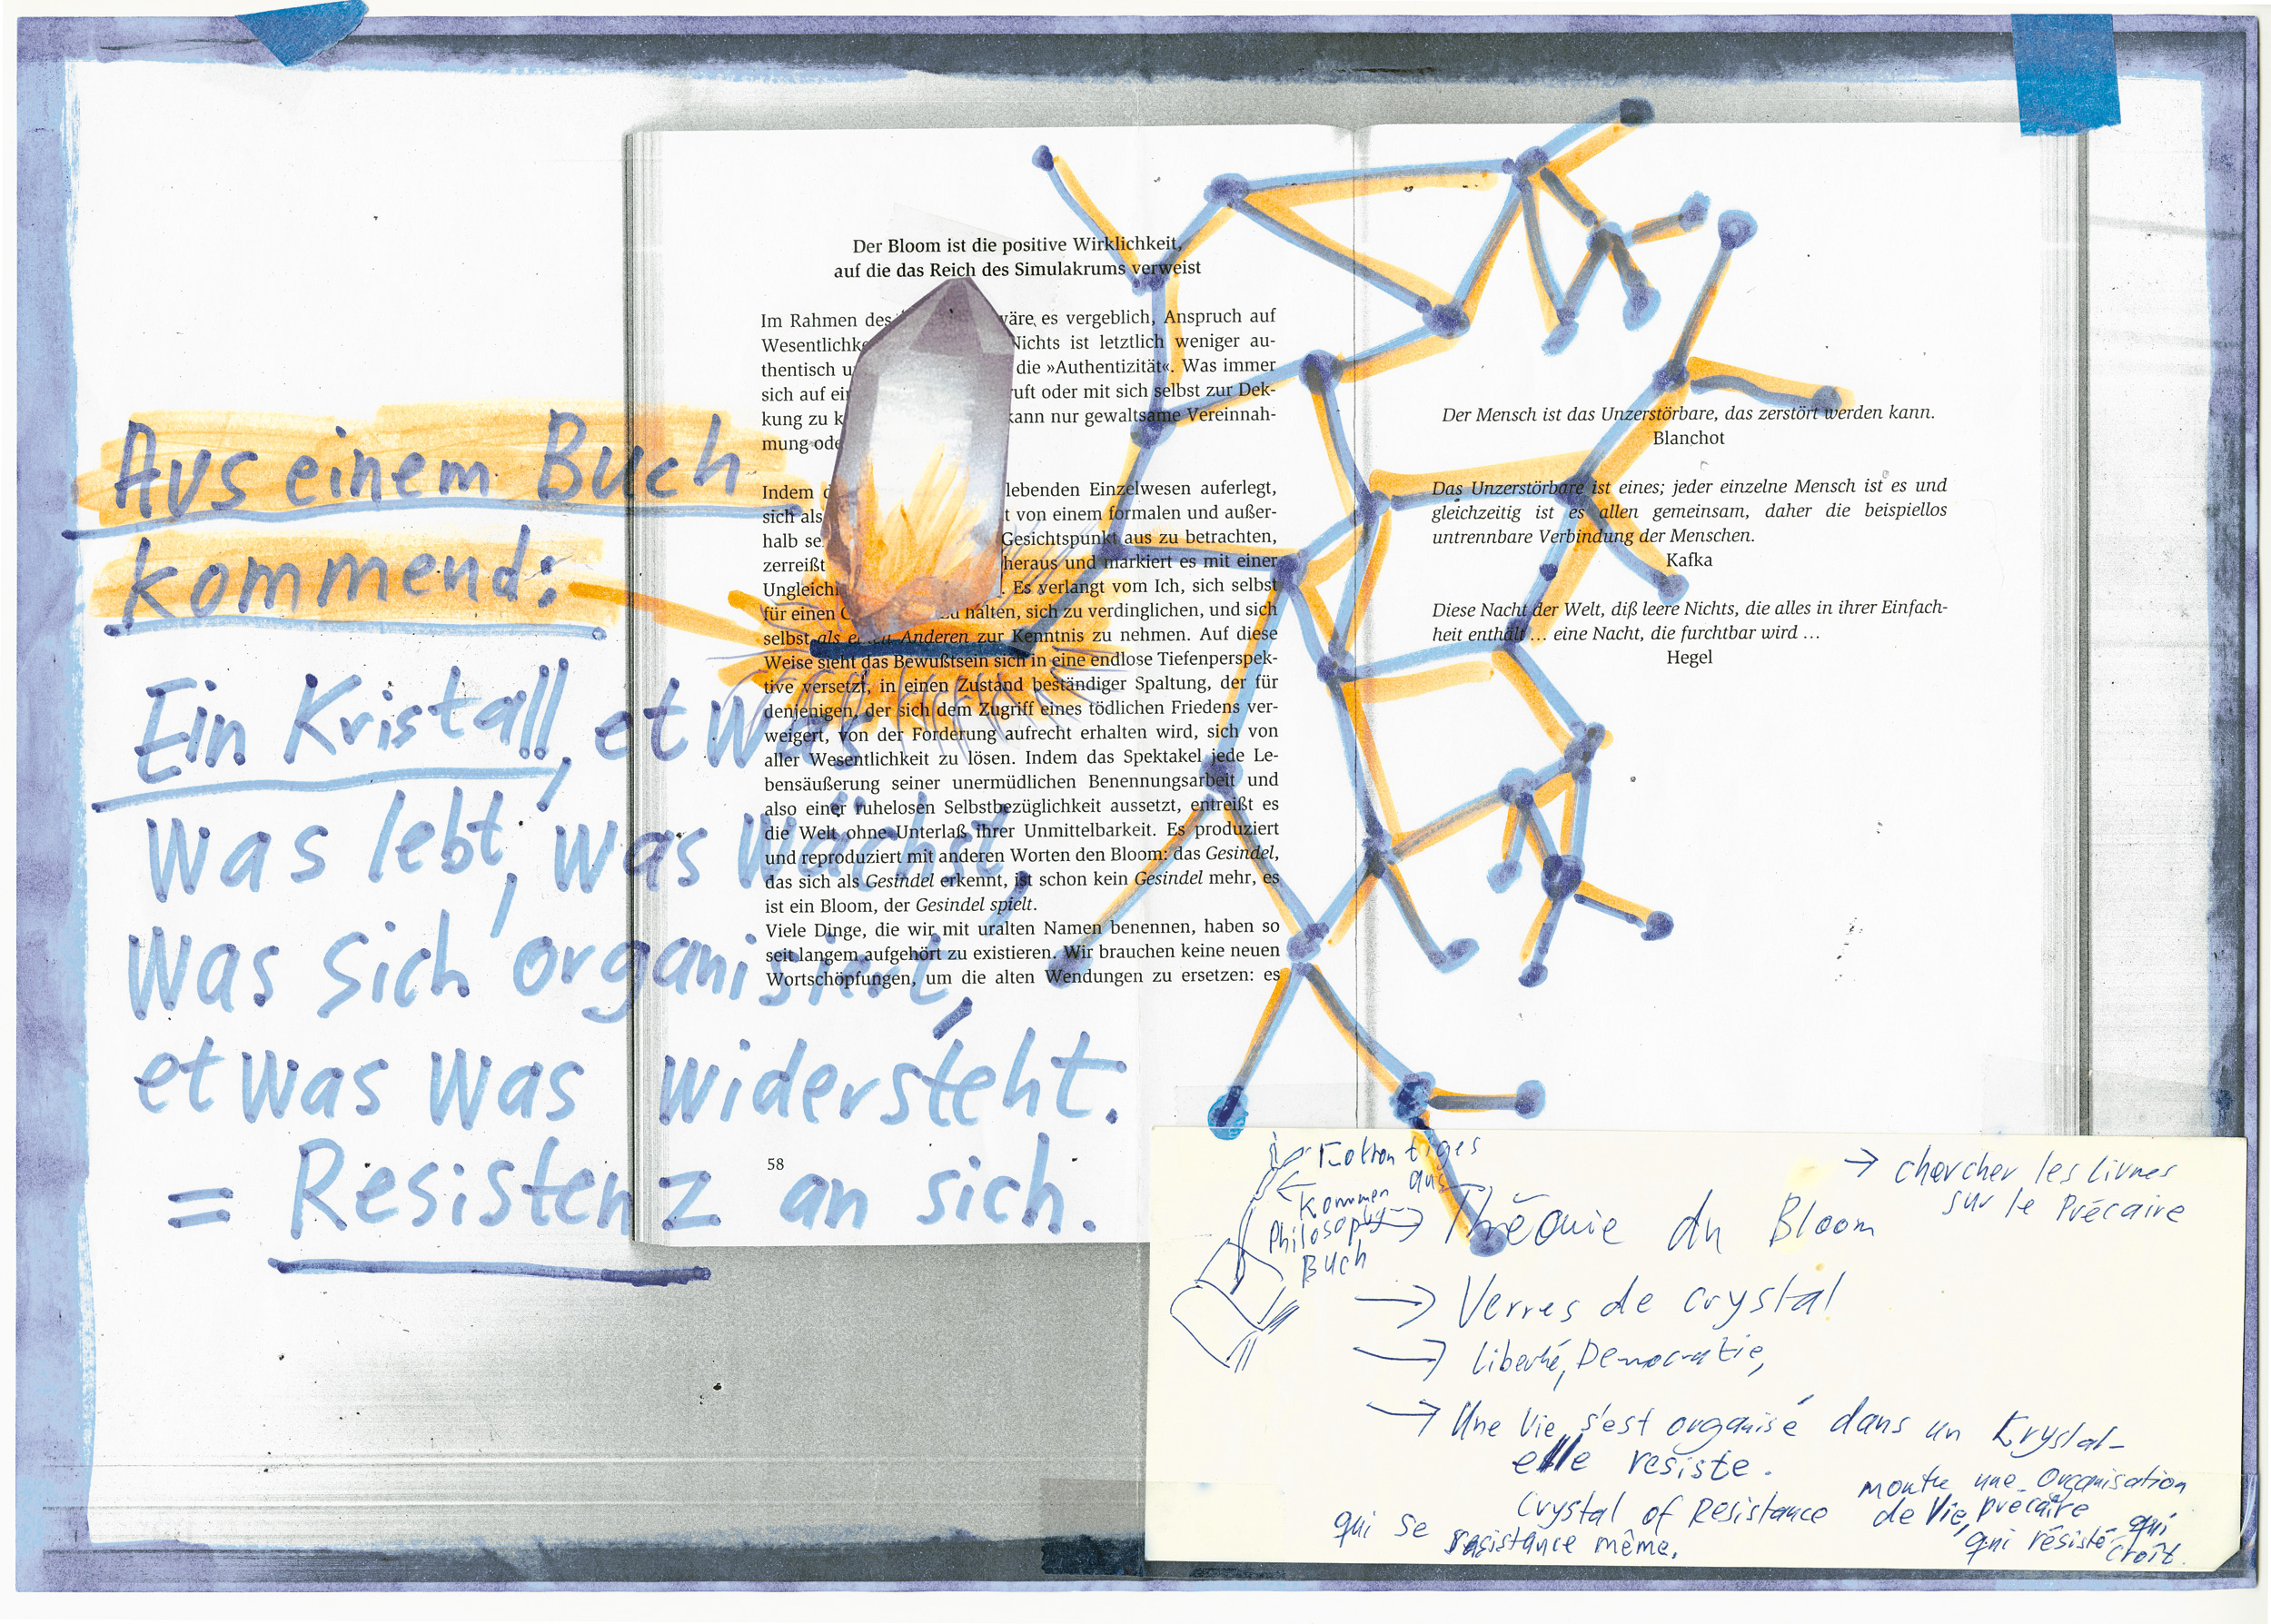 Der Bloom ist die positive Wirklichkeit,
auf die das Reich des Simulakrums verweist
Im Rahmen des wäre es vergeblich, Anspruch auf
Nichts ist letztlich weniger au-
thentisch die »Authentizität«. Was immer
sich auf mit sich selbst zur Dek-
kung zu kann nur gewaltsame Vereinnah-
mung
Indem lebenden Einzelwesen auferlegt,
sich als von einem formalen und außer-
halb Gesichtspunkt aus zu betrachten,
zerreißt heraus und markiert es mit einer
Es verlangt vom Ich, sich selbst
für einen zu halten, sich zu verdinglichen, und sich
selbst als einen Anderen zur Kenntnis zu nehmen. Auf diese
Weise sieht das Bewußtsein sich in eine endlose Tiefenperspek-
tive versetzt, in einen Zustand beständiger Spaltung, der für
denjenigen, der sich dem Zugriff eines tödlichen Friedens ver-
weigert, von der Forderung aufrecht erhalten wird, sich von
aller Wesentlichkeit zu lösen. Indem das Spektakel jede Le-
bensäußerung seiner unermüdlichen Benennungsarbeit und
also einer ruhelosen Selbstbezüglichkeit aussetzt, entreißt es
die Welt ohne Unterlaß ihrer Unmittelbarkeit. Es produziert
und reproduziert mit anderen Worten den Bloom: das Gesindel,
das sich als Gesindel erkennt, ist schon kein Gesindel mehr, es
ist ein Bloom, der Gesindel spielt.
Viele Dinge, die wir mit uralten Namen benennen, haben so
seit langem aufgehört zu existieren. Wir brauchen keine neuen
Wortschöpfungen, um die alten Wendungen zu ersetzen: es
58
Der Mensch ist das Unzerstörbare, das zerstört werden kann.
Blanchot
Das Unzerstörbare ist eines; jeder einzelne Mensch ist es und
gleichzeitig ist es allen gemeinsam, daher die beispiellos
untrennbare Verbindung der Menschen.
Kafka
Diese Nacht der Welt, diß leere Nichts, die alles in ihrer Einfach-
heit enthält … eine Nacht, die furchtbar wird …
Hegel
Aus einem Buch
kommend:
Ein Kristall, etwas
was lebt, was wächst,
was sich organisiert,
etwas was widersteht.
= Resistenz an sich.
tiges
Kommen aus
Philosophy
Buch
→ Théorie du Bloom
→ chercher les livres
sur le Précaire
→ Verres de crystal
→ liberté, Democratie,
→ Une Vie s'est organisé dans un Krystal-
elle resiste.
Crystal of Resistance montre une organisation
de Vie, précaire
qui résiste, qui
croît.
qui se resistance même.